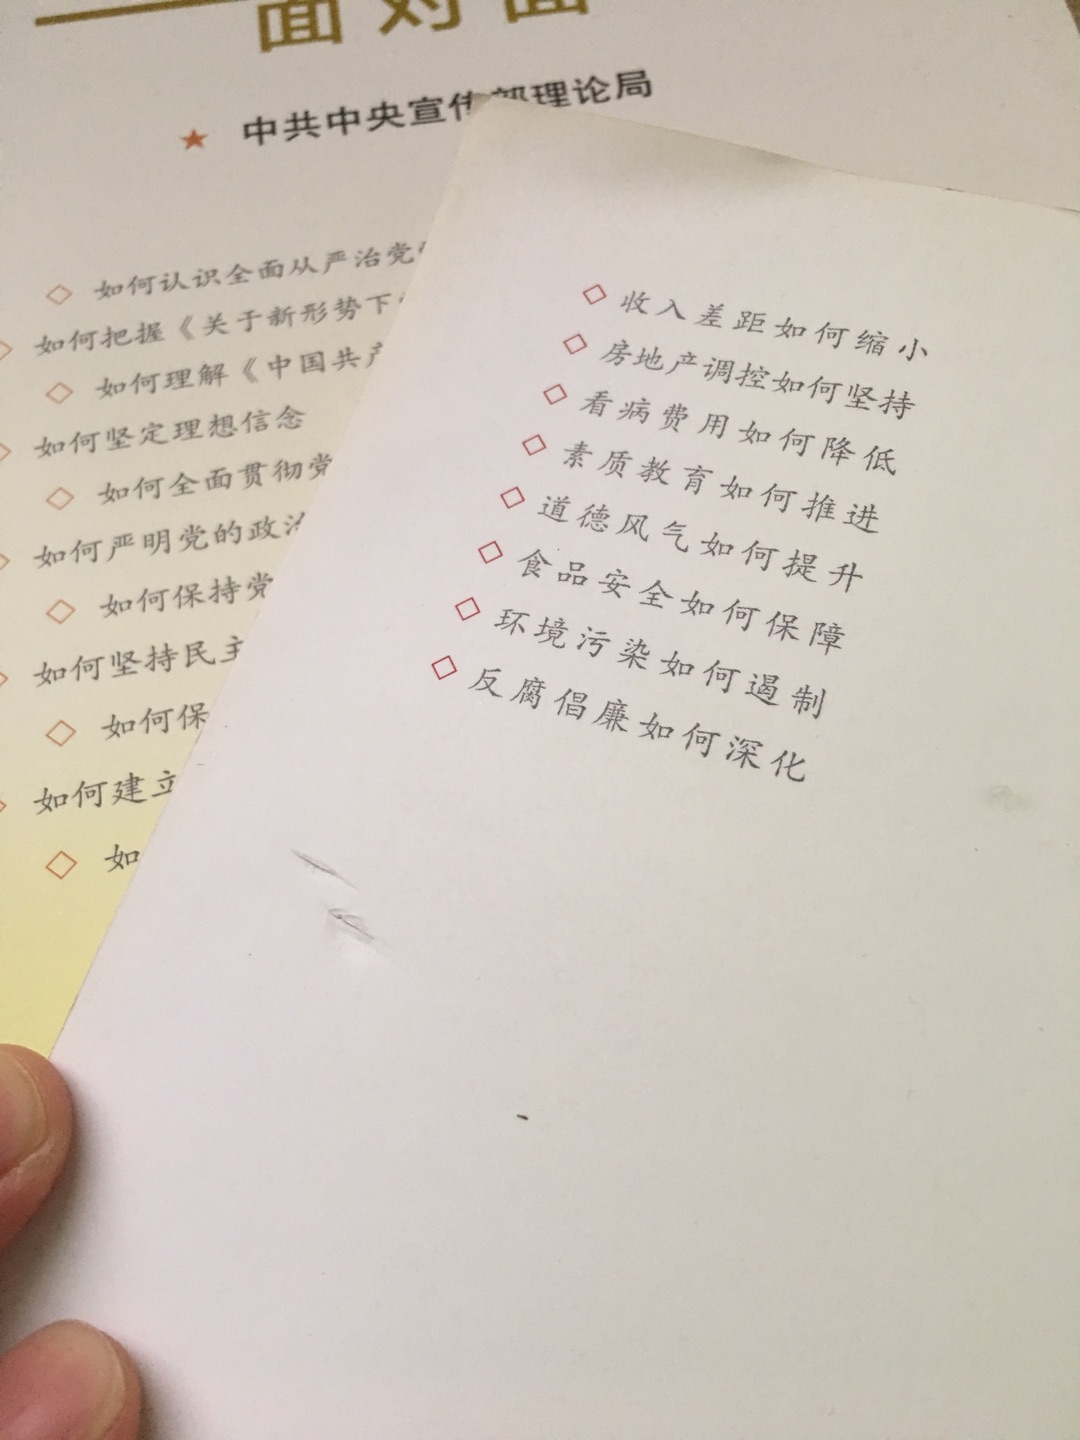 面对面
★ 中共中央宣传部理论局
◇ 如何认识全面从严治党
◇ 如何把握《关于新形势下
◇ 如何理解《中国共产
◇ 如何坚定理想信念
◇ 如何全面贯彻党
◇ 如何严明党的政治
◇ 如何保持党
◇ 如何坚持民主
◇ 如何保
◇ 如何建立
◇ 如
◇ 收入差距如何缩小
◇ 房地产调控如何坚持
◇ 看病费用如何降低
◇ 素质教育如何推进
◇ 道德风气如何提升
◇ 食品安全如何保障
◇ 环境污染如何遏制
◇ 反腐倡廉如何深化